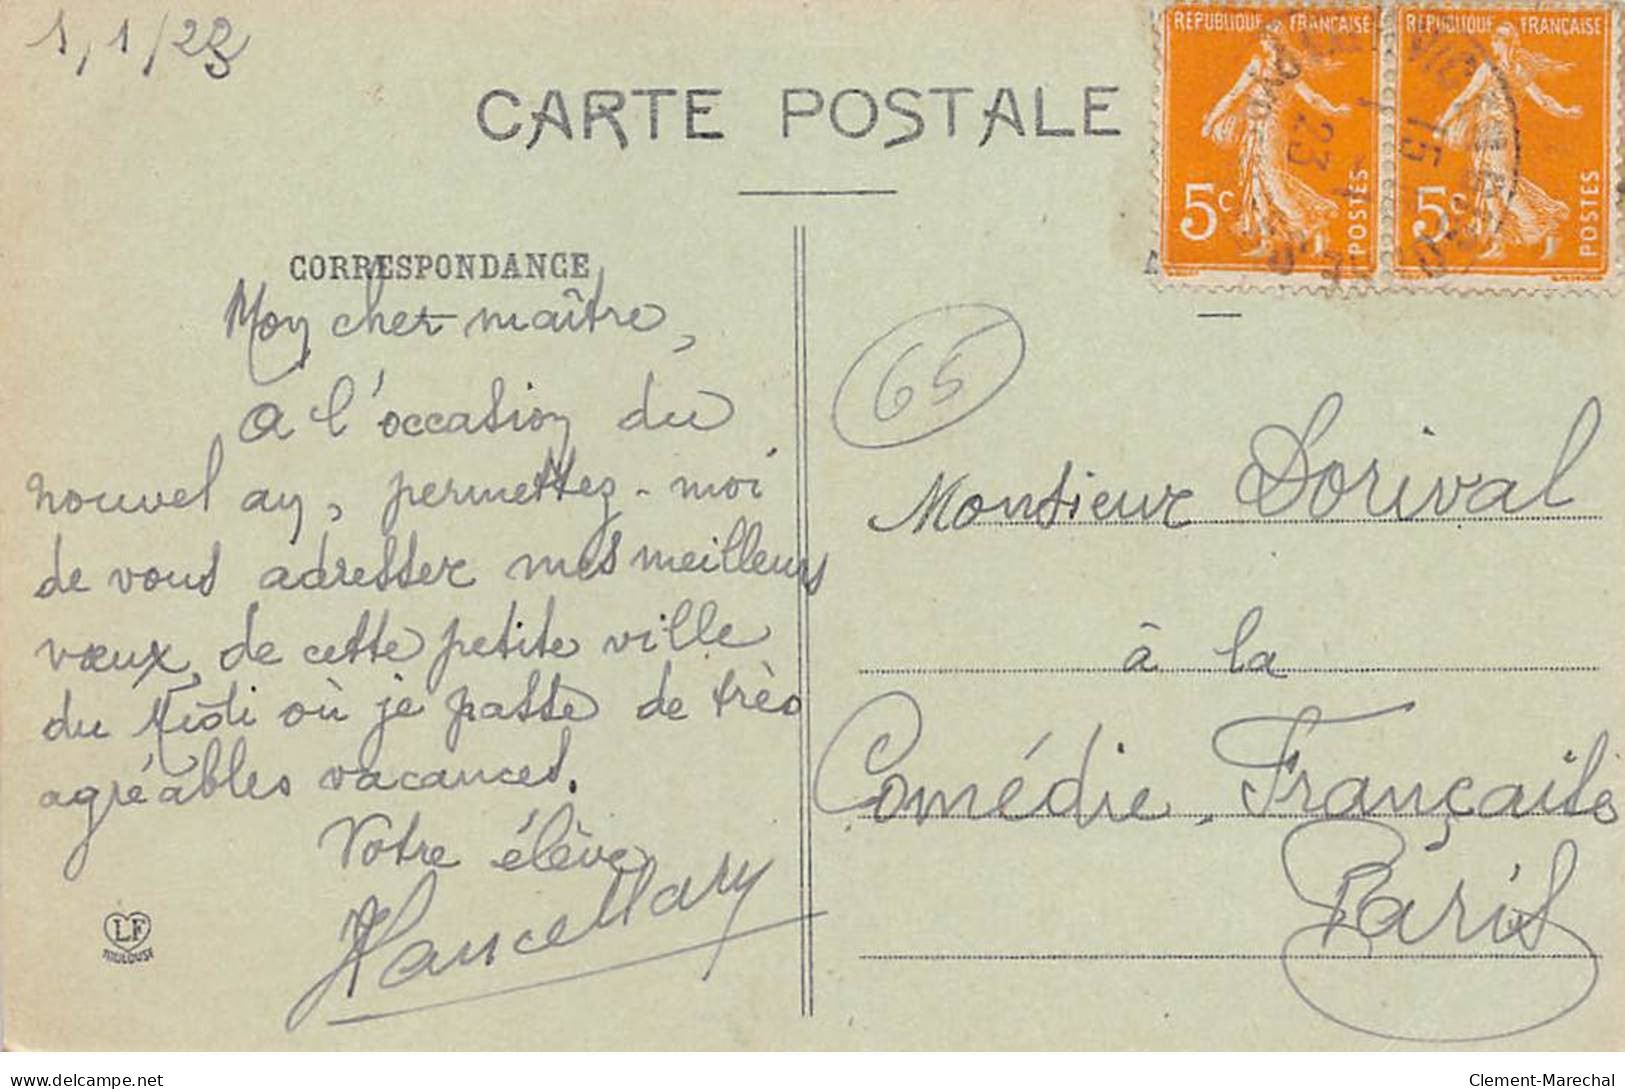 1/1/23
CARTE POSTALE
RÉPUBLIQUE FRANÇAISE
5c
POSTES
RÉPUBLIQUE FRANÇAISE
5c
POSTES
CORRESPONDANCE
Mon cher maître,
A l'occasion du
nouvel an, permettez-moi
de vous adresser mes meilleurs
vœux, de cette petite ville
du Midi où je passe de très
agréables vacances.
Votre élève
LF
TOULOUSE
65
Monsieur Dorival
à la
Comédie-Française
Paris
delcampe.net
Clement-Marechal